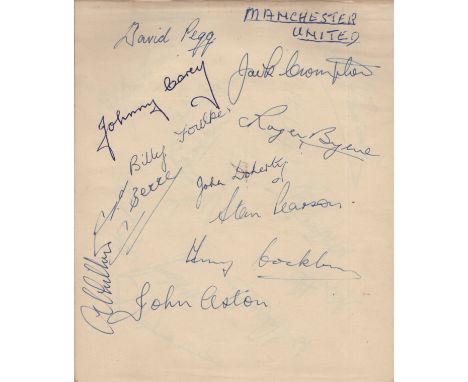 MANCHESTER
UNITED
David Pegg
Jack Crompton
Johnny Carey
Billy Foulkes
Roger Byrne
John Doherty
Stan Pearson
Henry Cockburn
John Aston